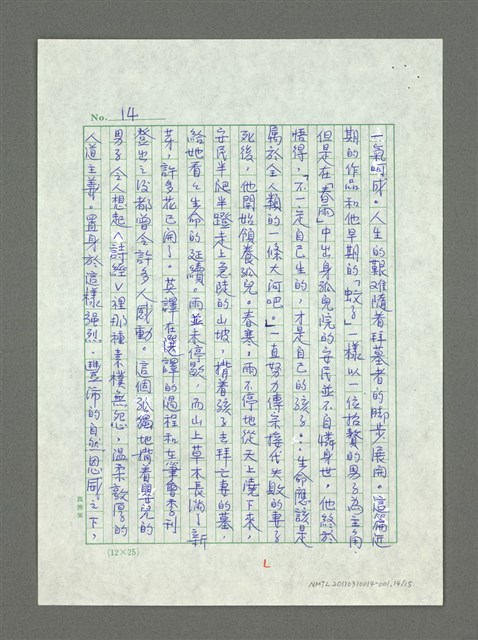 No. 14
一氣呵成。人生的艱難隨著拜墓者的脚步展開。這篇近
期的作品和他早期的「蚊子」一樣以一位招贅的男子為主角，
但是在「春雨」中出身孤兒院的安民並不自憐身世，他終於
悟得，「不一定自己生的，才是自己的孩子…生命應該是
屬於全人類的一條大河吧。」一直努力傳宗接代失敗的妻子
死後，他開始領養孤兒。春寒，雨不停地從天上澆下來，
安民半爬半蹬走上急陡的山坡，揹着孩子去拜亡妻的墓，
給她看看生命的延續。雨並未停歇，而山上草木長滿了新
芽，許多花已開了。英譯在選譯的過程和在筆會季刊
登出之後都曾令許多人感動。這個孤獨地揹着嬰兒的
男子令人想起〈詩經〉裡那種素樸無怨，溫柔敦厚的
人道主義。置身於這樣强烈．豐沛的自然恩威之下，
(12×25)
L
NMTL20110310014-001.14/15